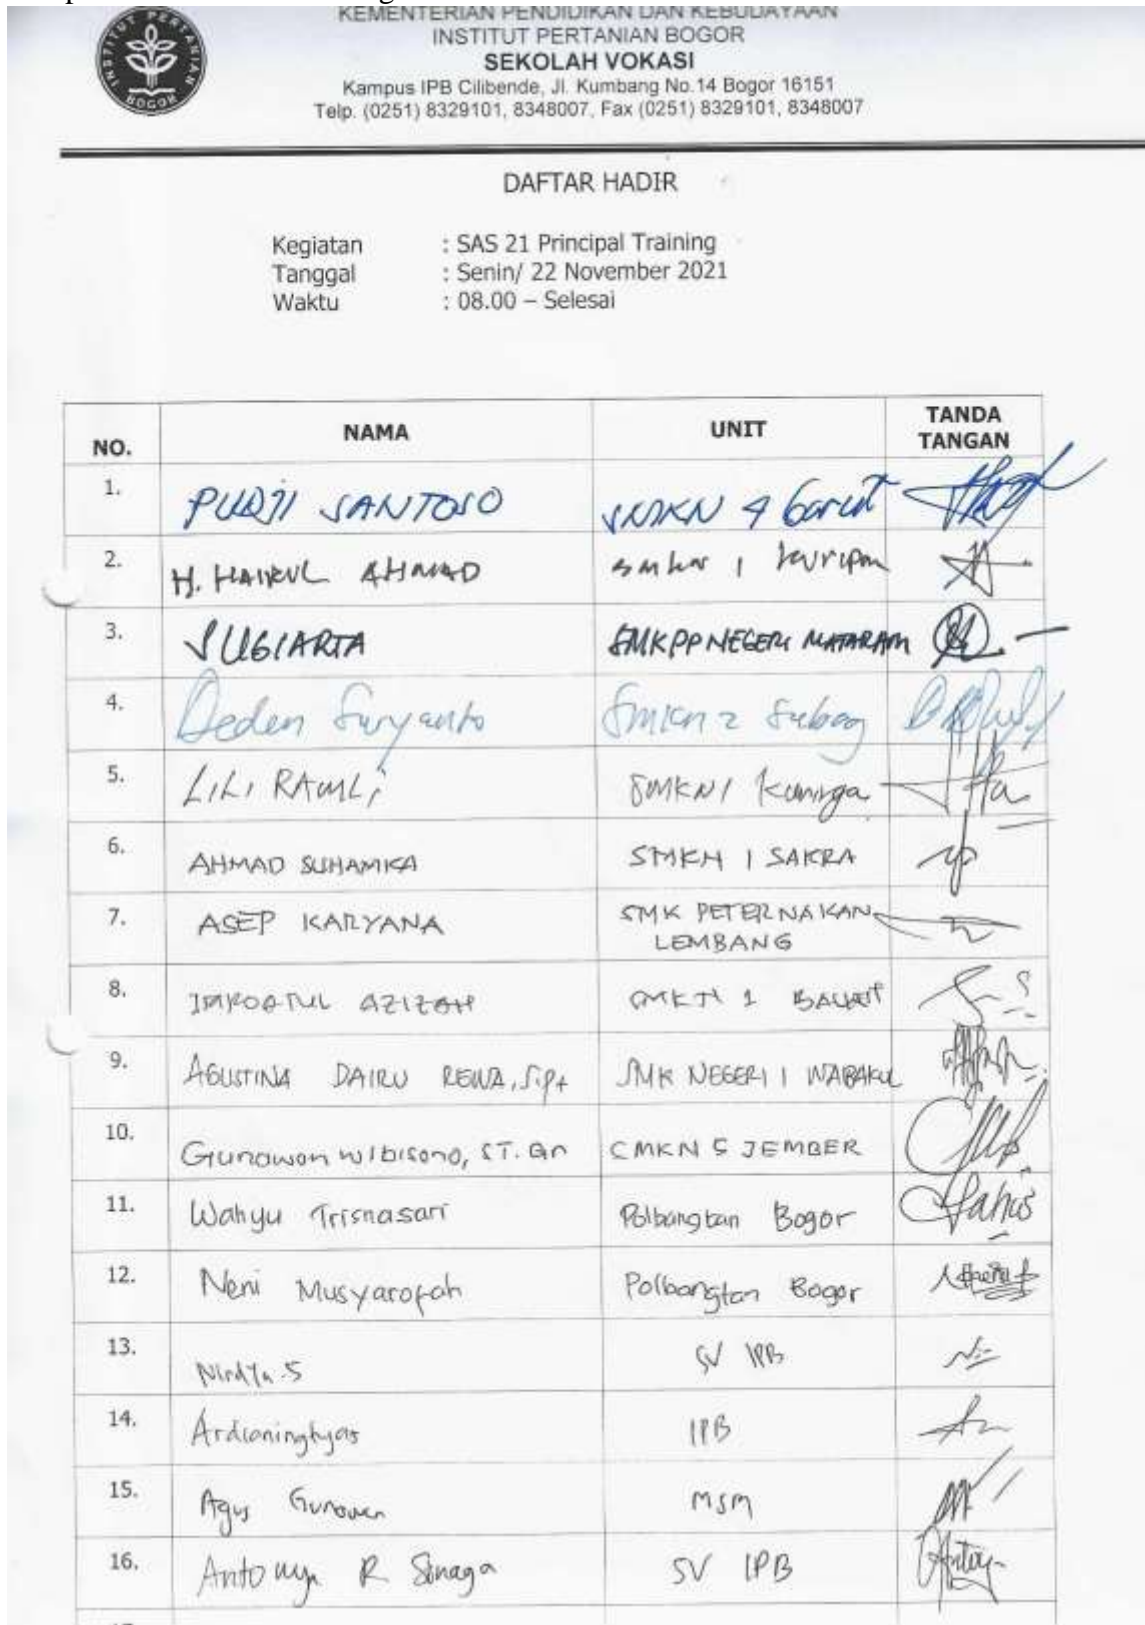 KEMENTERIAN PENDIDIKAN DAN KEBUDAYAAN
INSTITUT PERTANIAN BOGOR
SEKOLAH VOKASI
Kampus IPB Cilibende, Jl. Kumbang No.14 Bogor 16151
Telp. (0251) 8329101, 8348007, Fax (0251) 8329101, 8348007
INSTITUT PERTANIAN BOGOR
DAFTAR HADIR
Kegiatan : SAS 21 Principal Training
Tanggal : Senin/ 22 November 2021
Waktu : 08.00 – Selesai
NO. NAMA UNIT TANDA TANGAN
1. PUDJI SANTOSO SMKN 4 Garut
2. H. HAIRUL AHMAD 1 kuripan
3. SUGIARTA SMKPP NEGERI MATARAM
4. Deden Suryanto SMKN 2 Subag
5. LILI RAMLi SMKN 1 Kuninga
6. AHMAD SUHAMKA SMKN 1 SAKRA
7. ASEP KARYANA SMK PETERNAKAN
LEMBANG
8. IMROATUL AZIZAH SMKN 1
9. AGUSTINA DAIRU REWA, S.Pt SMK NEGERI 1 WABAKUL
10. Gunawan Wibisono, ST. Gr SMKN 5 JEMBER
11. Wahyu Trisnasari Polbangtan Bogor
12. Neni Musyarofah Polbangtan Bogor
13. Nirdya.S SV IPB
14. Ardianingtyas IPB
15. Agus Gunawan MSM
16. R Sinaga SV IPB